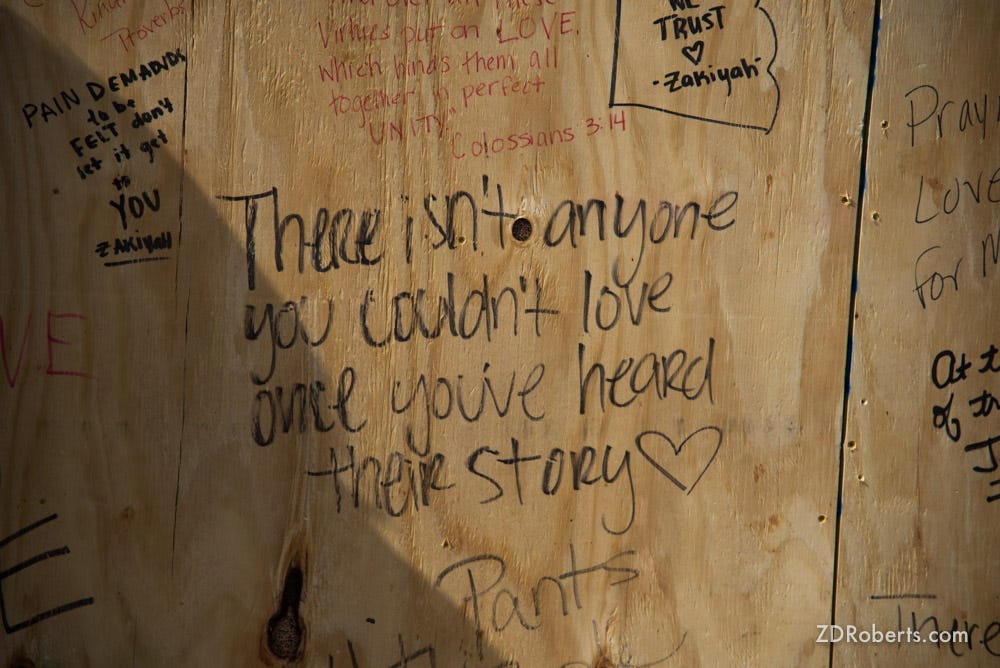 Proverbs
Virtues put on LOVE,
which binds them all
together in perfect
UNITY"
Colossians 3:14
TRUST
-Zakiyah-
PAIN DEMANDS
to be
FELT don't
let it get
to
YOU
ZAKIYAH
There isn't anyone
you couldn't love
once you've heard
their story
Pants
Love
For
At t
of th
There
ZDRoberts.com